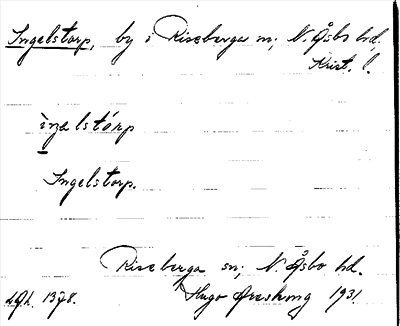 Ingelstorp, by i Riseberga sn; N. Åsbo hd,
Krist. l.
ìŋəlstórp
Ingelstorp.
Riseberga sn; N. Åsbo hd.
Hugo Areskoug 1931.